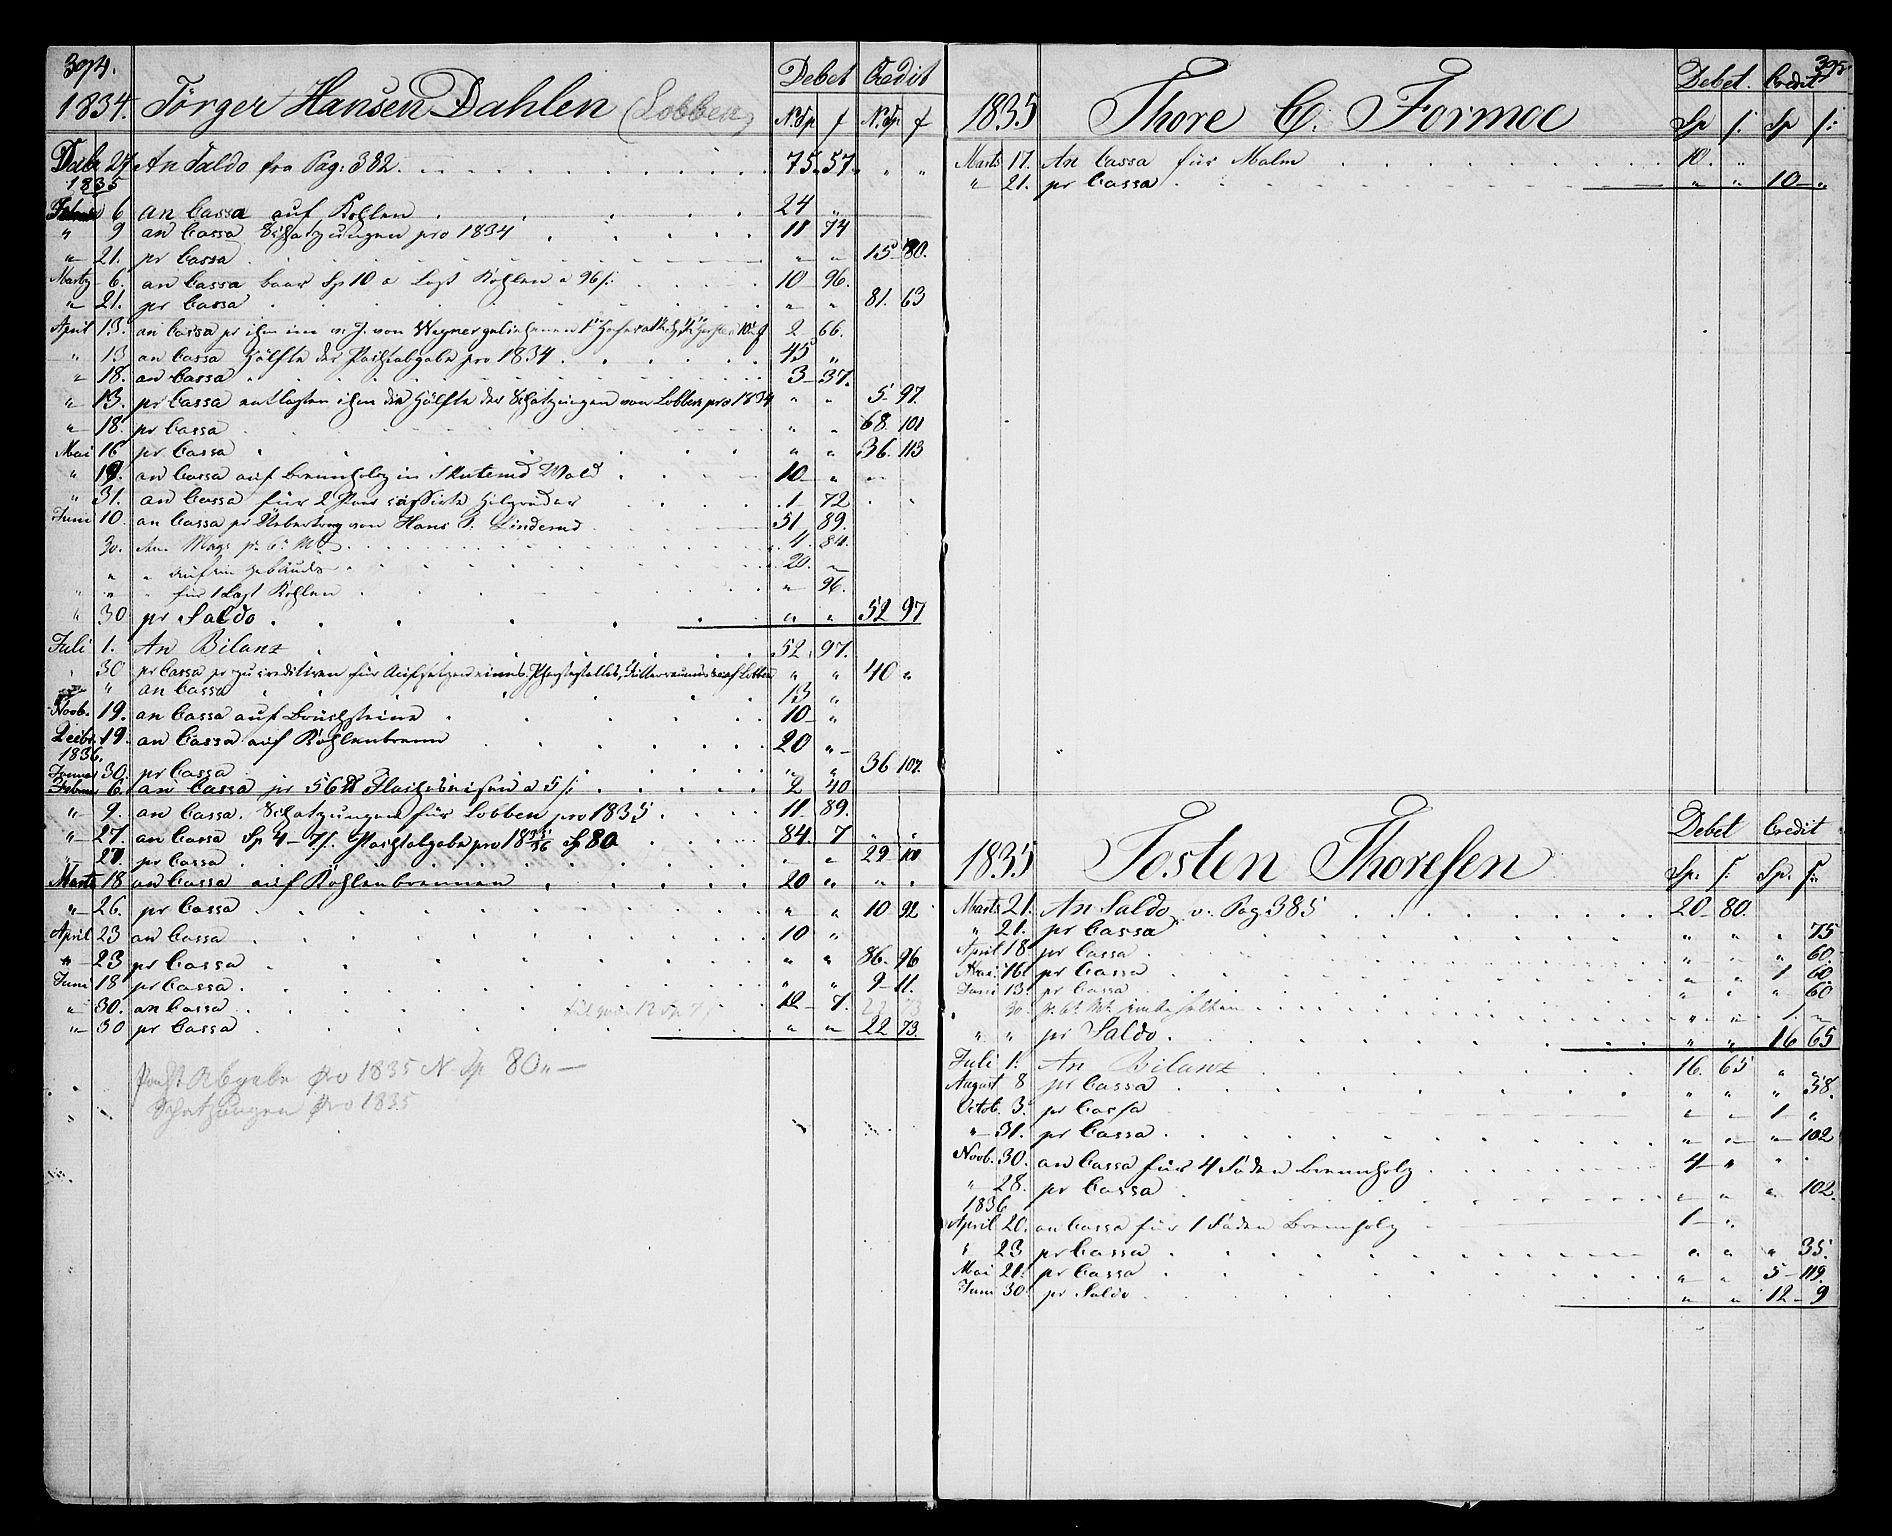 394.
1834. Törger Hansen Dahlen (Lobben)
Debet Credit
N. Sp f N. Sp f
Debr 27. An Saldo fra Pag: 382. 75. 57. " "
1835
Febru 6 an Cassa auf Kohlen 24 "
" 9 an Cassa Schatzungen pro 1834 11 74
" 21. pr Cassa " " 15 80.
Marty 6. an Cassa baar Sp 10 a Last Kohlen a 96 f: 10 96.
" 21. pr Cassa " " 81. 63
April 13. an Cassa pr ihm im v. J. von Wegner geliehenen 2 66.
" 13 an Cassa Hälfte der Pachtabgabe pro 1834. 45 "
" 18. an Cassa 3 37.
" 13. pr Cassa entlasten ihm die Hälfte der Schatzungen von Lobben pro 1834 " " 5 97.
" 18. pr Cassa " " 68. 101
Mai 16 pr Cassa " " 36. 113
" 19. an Cassa auf Brennholz in Skuterud Wald 10 "
" 31. an Cassa für 2 Paar cassirte 1 72
Juni 10. an Cassa pr Uebertrag von Hans P. Linderud 51 89.
30. An Mag: pr 6: Mt 4. 84.
" " auf ein Gebäude 20. "
" " " für 1 Last Kohlen " 96.
" 30 pr Saldo " " 52 97
Juli 1. An Bilanz 52 97.
" 30 pr Cassa pr zu creditiren für Aufsetzen eines Pferdestalles, auf Lobben " " 40 "
" " an Cassa 13 "
Novb. 19. an Cassa auf Bruchsteine 10 "
Decbr. 19. an Cassa auf Kohlenbrenn 20 "
1836.
Januar 30. pr Cassa " " 36 107.
Februar 6. an Cassa pr 56 ℔ a 5 f: 2 40
" 9. an Cassa. Schatzungen für Lobben pro 1835 11 89.
" 27. an Cassa Sp 4 - 7 f. Pachtabgabe pro 1835/36 Sp 80 84. 7 " "
" 27. pr Cassa " " 29 100
Marts 18 an Cassa auf Kohlenbrennen 20 " " "
" 26. pr Cassa " " 10 92
April 23 an Cassa 10 "
" 23 pr Cassa " " 86. 96
Juni 18 pr Cassa " " 9 11.
" 30. an Cassa 12 7. 22 73
" 30 pr Cassa " " 22 73.
Pacht Abgabe pro 1835 N Sp 80 " —
Schatzungen pro 1835
395.
1835 Thore C. Formoe
Debet. Credit
Sp f: Sp f:
Marts 17. An Cassa für Malm 10. "
" 21. pr Cassa " " 10 "
1835 Tosten Thoresen
Debet Credit
Sp. f: Sp. f:
Marts 21. An Saldo v. Pag 385 20 80.
" 21. pr Cassa " " " 75
April 18 pr Cassa " " " 60.
Mai. 16 pr Cassa " " 1 60
Juni 13. pr Cassa " " " 60
" 30. pr 6t Mt einbehalten " " 1. "
" " pr Saldo " " 16 65
Juli 1. An Bilanz 16. 65 " "
August 8 pr Cassa " " " 38.
Octob. 3. pr Cassa " " 1 "
" 31. pr Cassa " " " 102
Novb. 30. an Cassa für 4 Faden Brennholz 4 " " "
" 28. pr Cassa " " " 102.
1836
April 20. an Cassa für 1 Faden Brennholz 1 "
" 23 pr Cassa " " " 35.
Mai 21. pr Cassa " " 5 119.
Juni 30. pr Saldo " " 12 9